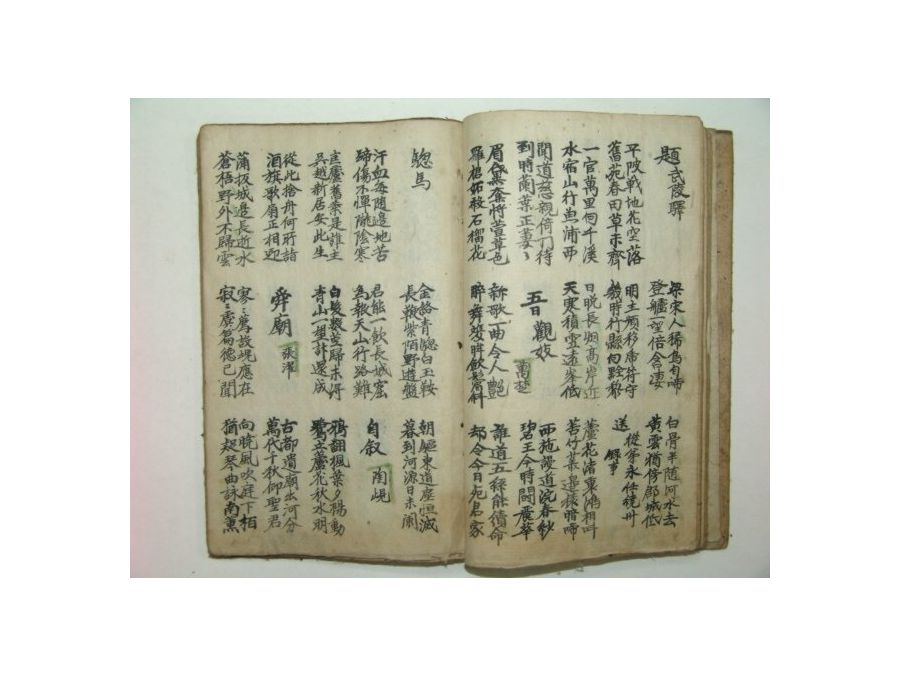 題武陵驛
梁宋人稀鳥自啼
登艫一望倍含凄
白骨半隨河水去
黃雲猶傍郡城低
平陂戰地花空落
舊苑春田草未齊
明主頻移虎符守
幾時行縣向黔黎
送從弟永任饒州錄事
一官萬里向千溪
水宿山行魚浦西
日晚長烟高岸近
天寒積雪遠峯低
蘆花渚裏鴻相叫
苦竹叢邊猿暗啼
聞道慈親倚門待
到時蘭葉正萋〻
五日觀妓 萬楚
西施謾道浣春紗
碧玉今時鬪麗華
眉黛奪將萱草色
羅裙妬殺石榴花
新歌一曲令人艶
醉舞雙眸斂鬢斜
誰道五絲能續命
却令今日死君家
驄馬
金絡青驄白玉鞍
長鞭紫陌野遊盤
朝驅東道塵恒滅
暮到河源日未闌
汗血每隨邊地苦
蹄傷不憚隴陰寒
君能一飲長城窟
爲報天山行路難
自叙 陶峴
匡廬舊業是誰主
吳越新居安此生
白髮數莖歸未得
青山一望計還成
鴉翻楓葉夕陽動
鷺立蘆花秋水明
從此捨舟何所詣
酒旗歌扇正相迎
舜廟 張濯
古都遺廟出河汾
萬代千秋仰聖君
蒲坂城邊長近水
蒼梧野外不歸雲
寥〻舊故堤應在
寂〻虞篇德已聞
向晚風吹庭下栢
猶疑琴曲詠南薰